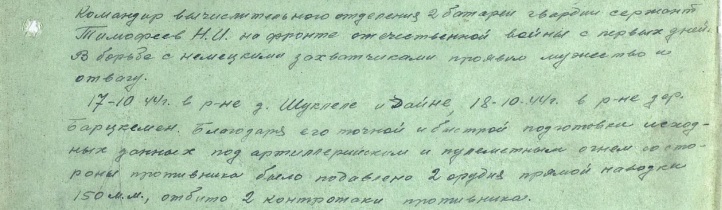 Командир вычислительного отделения 2 батареи гвардии сержант
Тимофеев Н.И. на фронте отечественной войны с первых дней.
В борьбе с немецкими захватчиками проявил мужество и
отвагу.
17-10-44г. в р-не д. Шуклеле и Дайне, 18-10-44г. в р-не дер.
Барцкемен. Благодаря его точной и быстрой подготовки исход-
ных данных под артиллерийским и пулеметным огнем со сто-
роны противника было подавлено 2 орудия прямой наводки
150 м.м., отбито 2 контротаки противника.